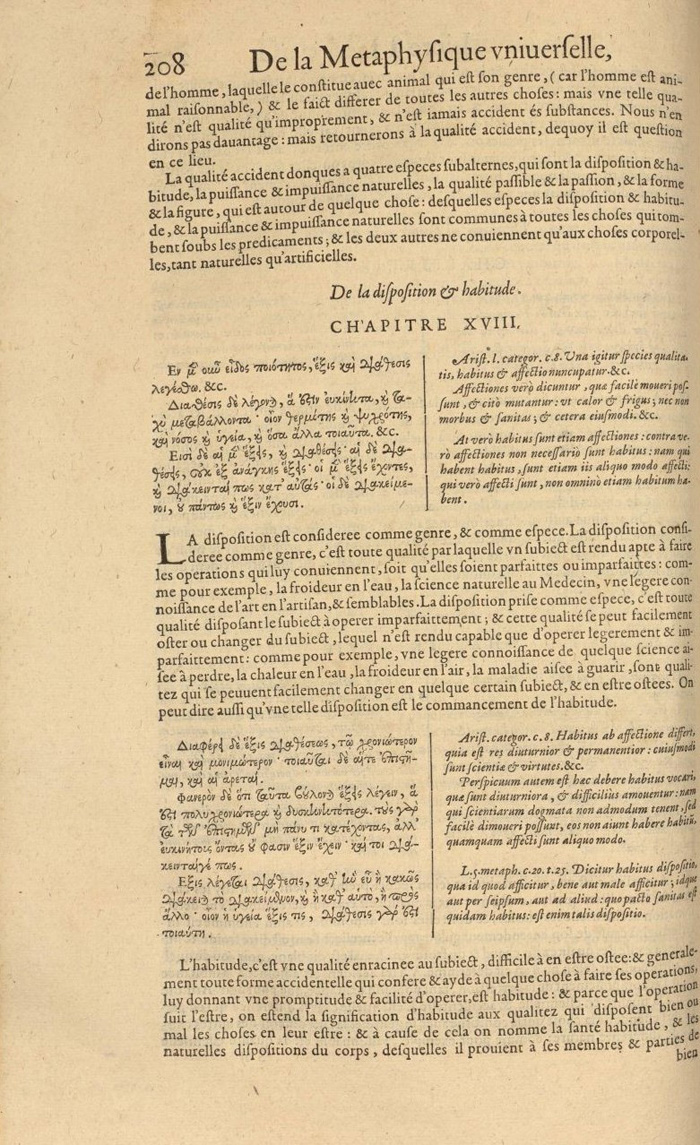 208 De la Metaphyſique vniuerſelle,
de l'homme, laquelle le conſtitue auec animal qui eſt ſon genre, ( car l'homme eſt ani-
mal raiſonnable, ) & le faict differer de toutes les autres choſes: mais vne telle qua-
lité n'eſt qualité qu'improprement, & n'eſt iamais accident és ſubſtances. Nous n'en
dirons pas dauantage: mais retournerons à la qualité accident, dequoy il eſt queſtion
en ce lieu.
La qualité accident donques a quatre eſpeces ſubalternes, qui ſont la diſpoſition & ha-
bitude, la puiſſance & impuiſſance naturelles, la qualité paſſible & la paſſion, & la forme
& la figure, qui eſt autour de quelque choſe: deſquelles eſpeces la diſpoſition & habitu-
de, & la puiſſance & impuiſſance naturelles ſont communes à toutes les choſes qui tom-
bent ſoubs les predicaments; & les deux autres ne conuiennent qu'aux choſes corporel-
les, tant naturelles qu'artificielles.
De la diſpoſition & habitude.
CHAPITRE XVIII.
Εν μ̃ οιῶ εἶδος ποιότητος, ἕξις καὶ διάθεσις
λεγέσθω. &c.
Διαθέσις δὲ λέγον), ἅ ἐστιν ευκίνητα, κὶ τα-
χὺ μεταβάλλοντα· οἷον θερμότης κὶ ψυχρότης,
καὶ νόσος κὶ ὑγεία, κὶ ὅσα ἄλλα τοιαῦτα. &c.
Εἰσὶ δὲ αἱ μ̃ ἕξεις, κὶ διαθέσεις· αἱ δὲ δια-
θέσεις, οὐκ ἐξ ἀνάγκης ἕξεις· οἱ μ̃ ἕξεις ἔχοντες,
κὶ διάκεινταί πως κατ' αὐτάς· οἱ δὲ διακείμε-
νοι, ȣ πάντως κὶ ἕξιν ἔχουσι.
Ariſt. l. categor. c. 8. Una igitur ſpecies qualita-
tis, habitus & affectio nuncupatur. &c.
Affectiones verò dicuntur, quæ facilè moueri poſ-
ſunt, & citò mutantur: vt calor & frigus; nec non
morbus & ſanitas; & cetera eiuſmodi. &c.
At verò habitus ſunt etiam affectiones: contra ve-
rò affectiones non neceſſariò ſunt habitus: nam qui
habent habitus, ſunt etiam iis aliquo modo affecti:
qui verò affecti ſunt, non omnino etiam habitum ha-
bent.
LA diſpoſition eſt conſideree comme genre, & comme eſpece. La diſpoſition conſi-
deree comme genre, c'eſt toute qualité par laquelle vn ſubiect eſt rendu apte à faire
les operations qui luy conuiennent, ſoit qu'elles ſoient parfaittes ou imparfaittes: com-
me pour exemple, la froideur en l'eau, la ſcience naturelle au Medecin, vne legere con-
noiſſance de l'art en l'artiſan, & ſemblables. La diſpoſition priſe comme eſpece, c'eſt toute
qualité diſpoſant le ſubiect à operer imparfaittement; & cette qualité ſe peut facilement
oſter ou changer du ſubiect, lequel n'eſt rendu capable que d'operer legerement & im-
parfaittement: comme pour exemple, vne legere connoiſſance de quelque ſcience ai-
ſee à perdre, la chaleur en l'eau, la froideur en l'air, la maladie aiſee à guarir, ſont quali-
tez qui ſe peuuent facilement changer en quelque certain ſubiect, & en eſtre oſtees. On
peut dire auſſi qu'vne telle diſpoſition eſt le commancement de l'habitude.
Διαφέρει δὲ ἕξις διαθέσεως, τῷ χρονιώτερον
εἶναι καὶ μονιμώτερον· τοιαῦται δὲ αἵτε ἐπιστῆ-
μαι, καὶ αἱ ἀρεταί.
Φανερὸν δὲ ὅτι ταῦτα βούλον) ἕξεις λέγειν, ἅ
ἐστι πολυχρονιώτερα κὶ δυσκινητότερα. τοὺς γὰρ
τῶν ἐπιστημῶν μὴ πάνυ τι κατέχοντας, ἀλλ'
ευκινήτους ὄντας ȣ φασιν ἕξιν ἔχειν· καί τοι διά-
κεινταίγέ πως.
Εξις λέγεται διάθεσις, καθ' ἣν εὖ ἢ κακῶς
διάκειται τὸ διακείμενον, κὶ ἢ καθ' αὑτὸ, ἢ πρὸς
ἄλλο· οἷον ἡ ὑγεία ἕξις τις, διάθεσις γάρ ἐστι
τοιαύτη.
Ariſt. categor. c. 8. Habitus ab affectione differt,
quia eſt res diuturnior & permanentior: cuiuſmodi
ſunt ſcientiæ & virtutes. &c.
Perſpicuum autem eſt hæc debere habitus vocari,
quæ ſunt diuturniora, & difficilius amouentur: nam
qui ſcientiarum dogmata non admodum tenent, ſed
facilè dimoueri poſſunt, eos non aiunt habere habitũ,
quamquam affecti ſunt aliquo modo.
L. 5. metaph. c. 20. t. 25. Dicitur habitus diſpoſitio,
qua id quod afficitur, bene aut male afficitur; idque
aut per ſeipſum, aut ad aliud: quo pacto ſanitas eſt
quidam habitus: eſt enim talis diſpoſitio.
L'habitude, c'eſt vne qualité enracinee au ſubiect, difficile à en eſtre oſtee: & generale-
ment toute forme accidentelle qui confere & ayde à quelque choſe à faire ſes operations,
luy donnant vne promptitude & facilité d'operer, eſt habitude: & parce que l'operation
ſuit l'eſtre, on eſtend la ſignification d'habitude aux qualitez qui diſpoſent bien ou
mal les choſes en leur eſtre: & à cauſe de cela on nomme la ſanté habitude, & les
naturelles diſpoſitions du corps, deſquelles il prouient à ſes membres & parties de
bien